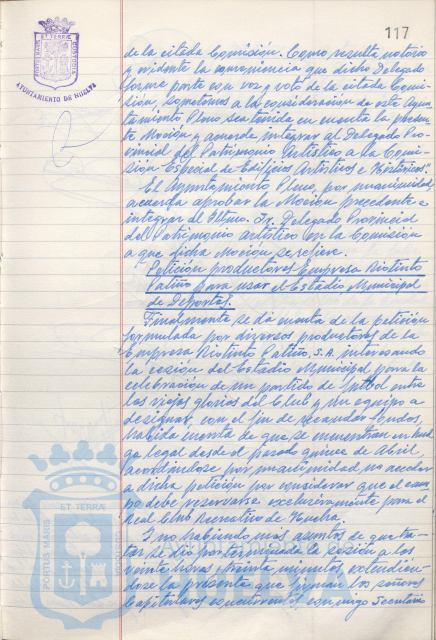 117
PORTUS MARIS ET TERRÆ CUSTODIA
AYUNTAMIENTO DE HUELVA
de la citada Comisión. Como resulta notorio
y evidente la conveniencia que dicho Delegado
forme parte con voz y voto de la citada Comi-
sión, sometemos a la consideración de este Ayun-
tamiento Pleno sea tenida en cuenta la presen-
te Moción y acuerde integrar al Delegado Pro-
vincial del Patrimonio Artístico a la Comi-
sión Especial de Edificios Artísticos e Históricos".
El Ayuntamiento Pleno, por unanimidad
acuerda aprobar la Moción precedente e
integrar al Iltmo. Sr. Delegado Provincial
del Patrimonio artístico en la Comisión
a que dicha Moción se refiere.
Petición productores Empresa Riotinto
Patiño para usar el Estadio Municipal
de Deportes.
Finalmente se dió cuenta de la petición
formulada por diversos productores de la
Empresa Riotinto Patiño, S.A. interesando
la cesión del Estadio Municipal para la
celebración de un partido de fútbol entre
las viejas glorias del Club y un equipo a
designar, con el fin de recaudar fondos,
habida cuenta de que se encuentran en huel
ga legal desde el pasado quince de Abril,
acordándose por unanimidad, no acceder
a dicha petición por considerar que el cam-
po debe reservarse exclusivamente para el
Real Club Recreativo de Huelva.
Y no habiendo más asuntos de que tra-
tar se dió por terminada la sesión a las
veinte horas y treinta minutos, extendién-
dose la presente que firman los señores
Capitulares concurrentes, conmigo Secretario
PORTUS MARIS ET TERRÆ CUSTODIA